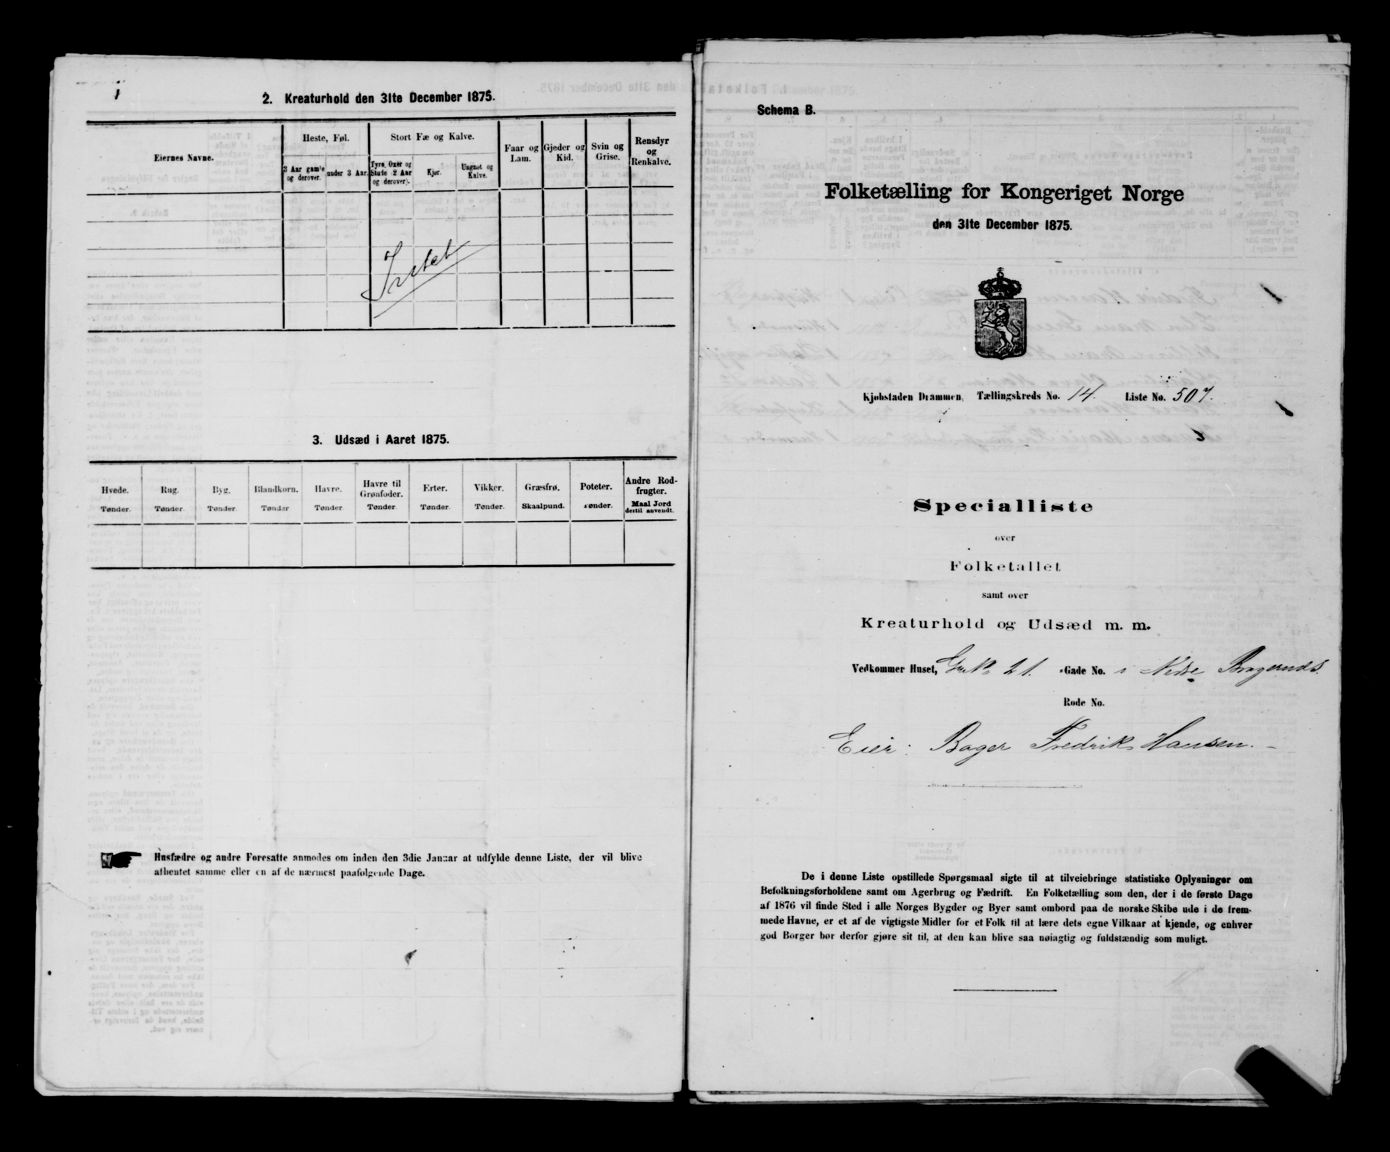 2. Kreaturhold den 31te December 1875.
Eiernes Navne.
Heste, Føl.
3 Aar gamle og derover.
under 3 Aar.
Stort Fæ og Kalve.
Tyre, Oxer og Stude 2 Aar og derover.
Kjør.
Ungnøt og Kalve.
Faar og Lam.
Gjeder og Kid.
Svin og Grise.
Rensdyr og Renkalve.
Intet
3. Udsæd i Aaret 1875.
Hvede. Rug. Byg. Blandkorn. Havre. Havre til Grønfoder. Erter. Vikker. Græsfrø. Poteter. Andre Rodfrugter.
Tønder. Tønder. Tønder. Tønder Tønder Tønder. Tønder. Tønder. Skaalpund. Tønder. Maal Jord dertil anvendt.
Husfædre og andre Foresatte anmodes om inden den 3die Januar at udfylde denne Liste, der vil blive
afhentet samme eller en af de nærmest paafølgende Dage.
Schema B.
Folketælling for Kongeriget Norge
den 31te December 1875.
Kjøbstaden Drammen, Tællingskreds No. 14. Liste No. 507.
Specialliste
over
Folketallet
samt over
Kreaturhold og Udsæd m. m.
Vedkommer Huset, Grk. 21. Gade No. i Nedre Bragernds.
Rode No.
Eier: Bager Fredrik Hansen.
De i denne Liste opstillede Spørgsmaal sigte til at tilveiebringe statistiske Oplysninger om
Befolkningsforholdene samt om Agerbrug og Fædrift. En Folketælling som den, der i de første Dage
af 1876 vil finde Sted i alle Norges Bygder og Byer samt ombord paa de norske Skibe ude i de frem-
mede Havne, er et af de vigtigste Midler for et Folk til at lære dets egne Vilkaar at kjende, og enhver
god Borger bør derfor gjøre sit til, at den kan blive saa nøiagtig og fuldstændig som muligt.